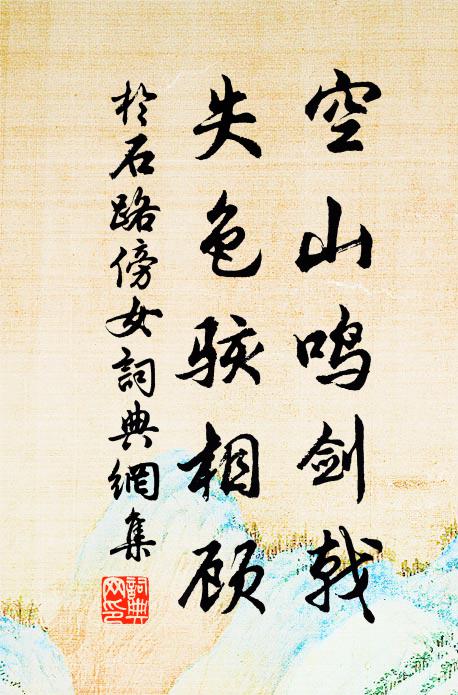 空山鸣剑戟
失色骇相顾
於石路傍女詞典網集